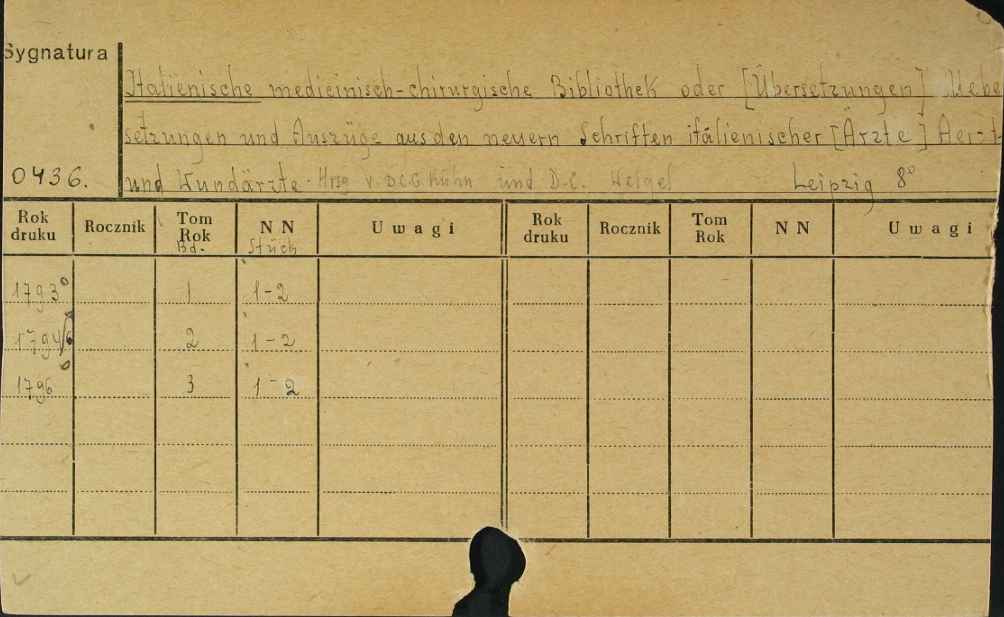 Sygnatura
Italienische medicinisch-chirurgische Bibliothek oder [Übersetzungen] Uebe
setzungen und Auszüge aus den neuern Schriften italienischer [Ärzte] Aerzt
0436.
und Wundärzte. Hrsg v. D.C.G. Kühn und D.C. Weigel Leipzig 8°
Rok druku Rocznik Tom Rok Bd. NN Stück Uwagi Rok druku Rocznik Tom Rok NN Uwagi
1793 1 1-2
1794/6 2 1-2
1796 3 1-2